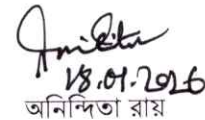 18.01.2026
অনিন্দিতা রায়